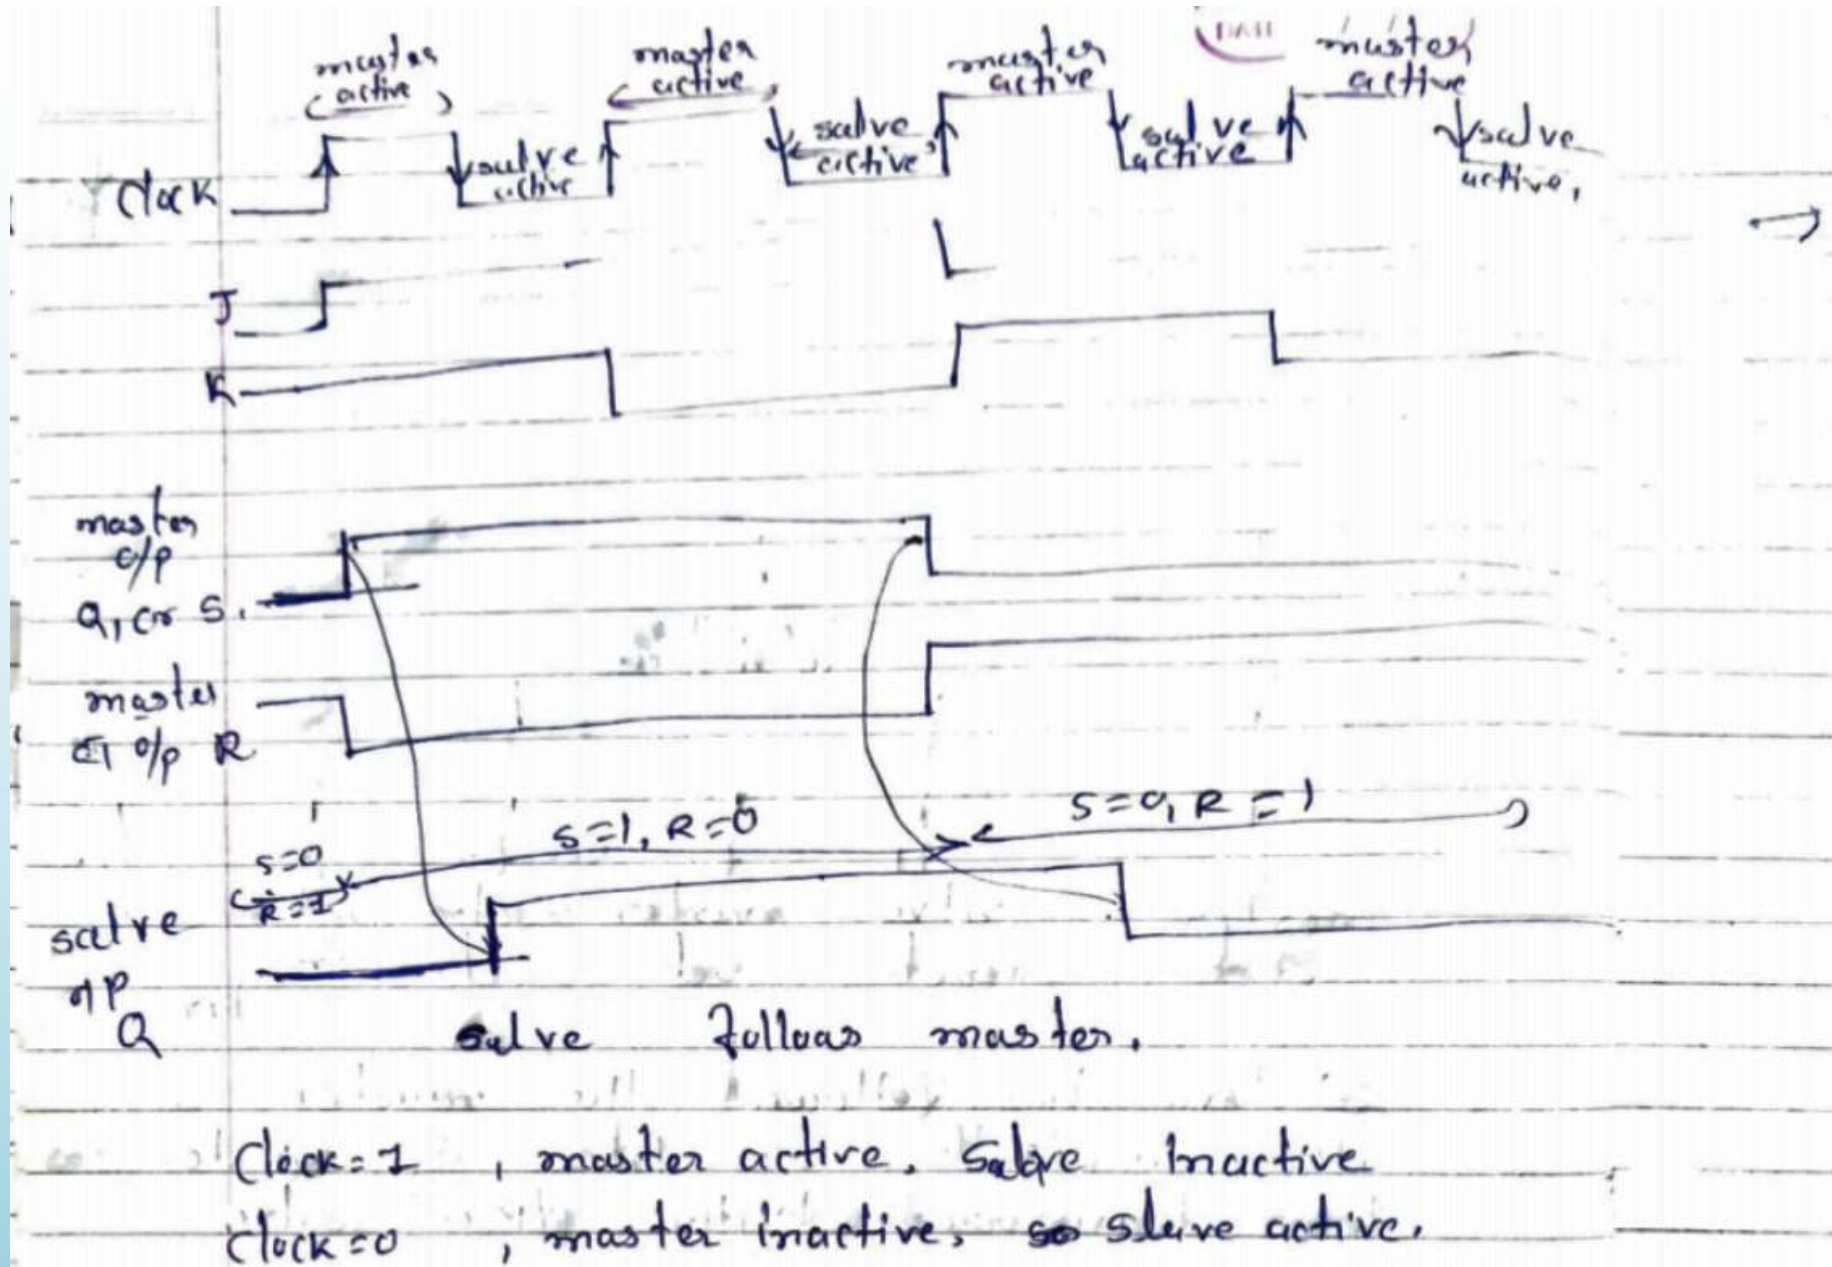 master active
master active
master active
master active
Clock
salve active
salve active
salve active
salve active,
J
K
master
o/p
Q, or S.
master
o/p R
S=1, R=0
S=0, R=1
S=0
R=1
salve
o/p
Q
salve follows master.
Clock=1 , master active. Salve Inactive
Clock=0 , master inactive, so slave active.